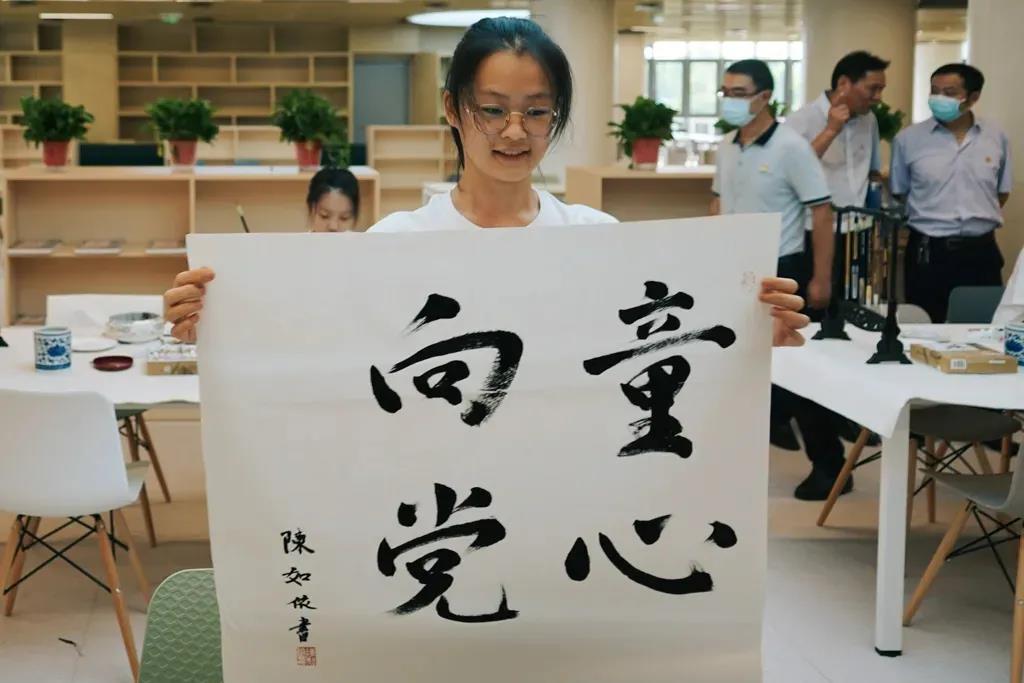 童心
向党
陳如依書